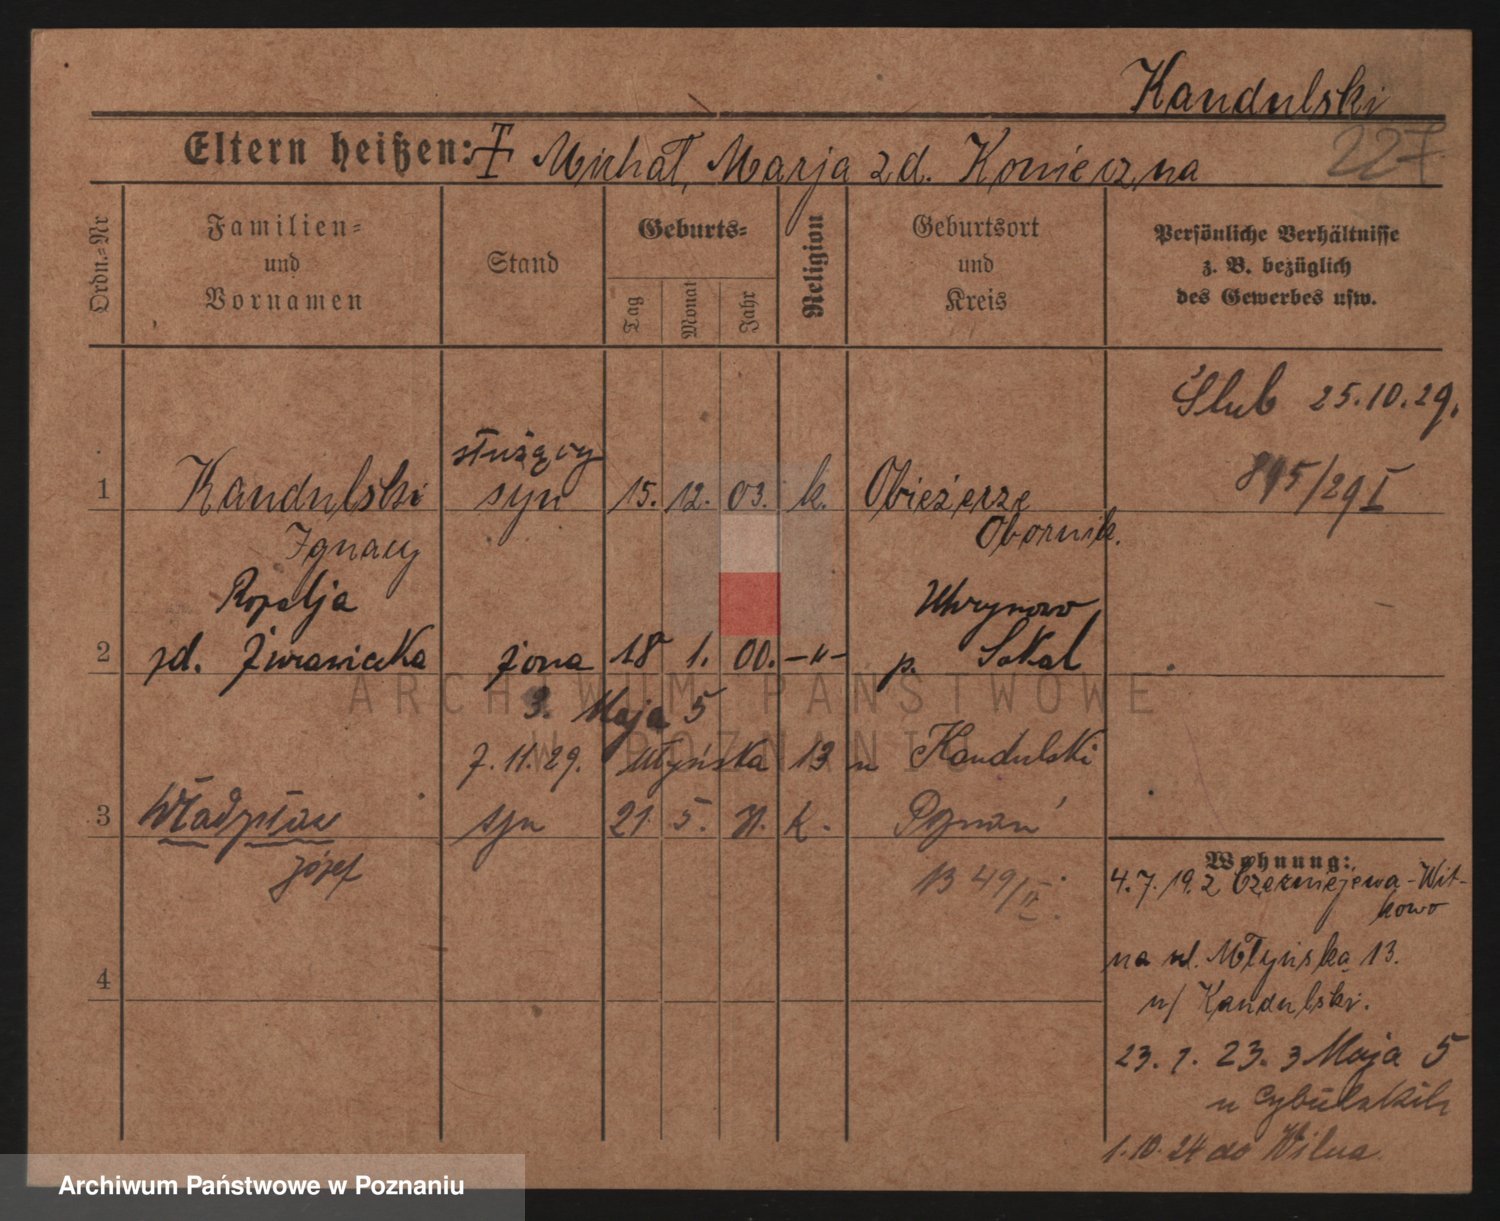 Kandulski
227
Eltern heißen: Michał, Marja zd. Konieczna
Ordn.=Nr
Familien=
und
Vornamen
Stand
Geburts=
Tag
Monat
Jahr
Religion
Geburtsort
und
Kreis
Persönliche Verhältnisse
z. B. bezüglich
des Gewerbes usw.
Ślub 25.10.29.
służący
1 Kandulski syn 15. 12. 03. k. Obieżerze
/29 I
Ignacy Obornik.
Uhrynowo
2 zd. żona 18 1. 00. -"- p. Sokal
3. Maja 5
7.11.29. Młyńska 13 u Kandulski
3 Władysław syn 21. 5. k. Poznań
Józef
49/II
4
Wohnung:
4.7.19.2 Czerniejewa-Wit-
kowo
na ul. Młyńska 13.
u/ Kandulski.
23. 7. 23. 3 Maja 5
u Cybulskich
1.10.24 do Wilna.
ARCHIWUM PAŃSTWOWE
W POZNANIU
Archiwum Państwowe w Poznaniu